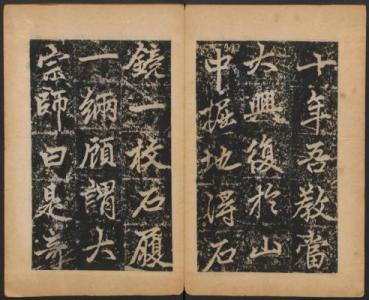 十年吾教當
大興復於山
中掘地得石
鏡一枚石履
一緉顧謂大
宗師曰是